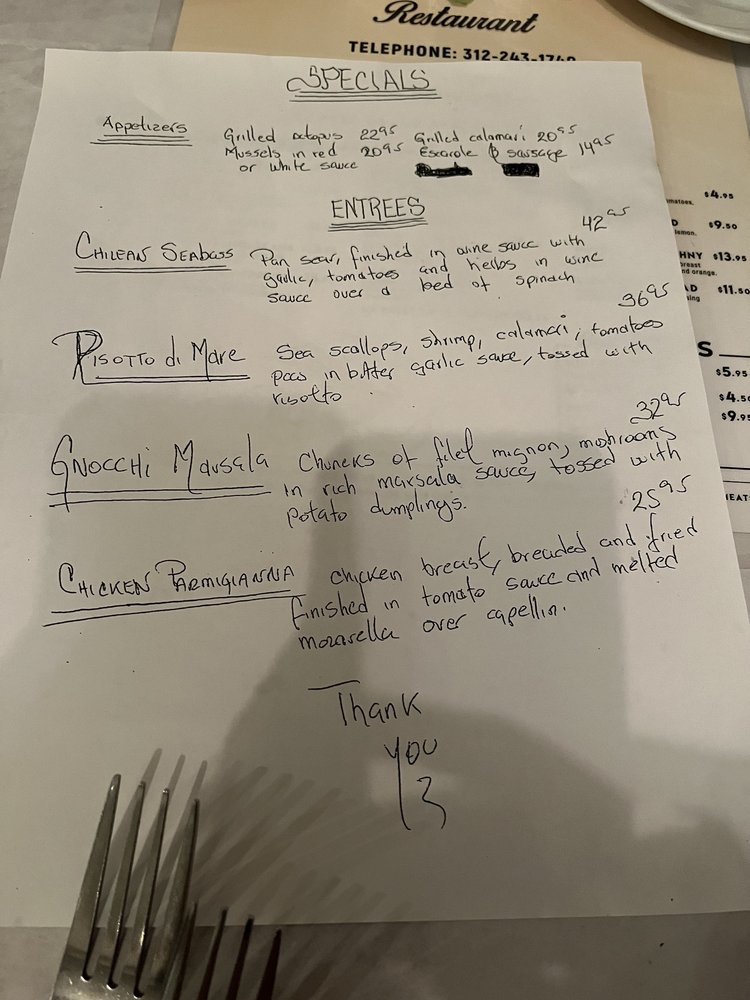 Restaurant
TELEPHONE: 312-243-1740
SPECIALS
Appetizers
Grilled octopus 2295 Grilled calamari 2095
Mussels in red 2095 Escarole & sausage 1495
or white sauce
ENTREES
4295
CHILEAN SEABASS Pan sear, finished in wine sauce with
garlic, tomatoes and herbs in wine
sauce over a bed of spinach
3695
RISOTTO di MARE Sea scallops, shrimp, calamari, tomatoes
peas in butter garlic sauce, tossed with
risotto
3295
GNOCCHI Marsala Chuncks of filet mignon, mushrooms
in rich marsala sauce, tossed with
potato dumplings.
2595
CHICKEN PARMIGIANNA chicken breast, breaded and fried
finished in tomato sauce and melted
mozarella over capellin.
Thank
you
matoes.
$4.95
D $9.50
lemon.
HNY $13.95
breast
nd orange.
AD $11.50
ing
S
$5.95
$4.50
$9.95